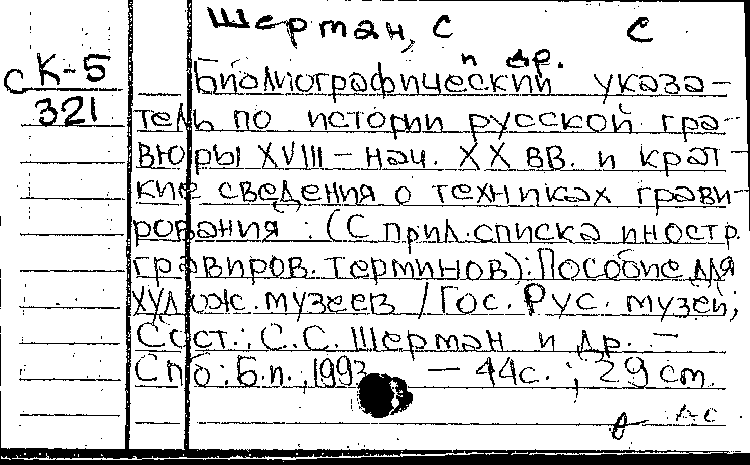 Шерман, С С
и др.
с К-5
321
Библиографический указа-
тель по истории русской гра-
вюры XVIII - нач. XX вв. и крат-
кие сведения о техниках грави-
рования : (С прил. списка иностр.
гравиров. терминов): Пособие для
худож. музеев / Гос. Рус. музей;
Сост.: С.С. Шерман и др. -
Спб: Б.п., 1993 - 44с. ; 29 cm.